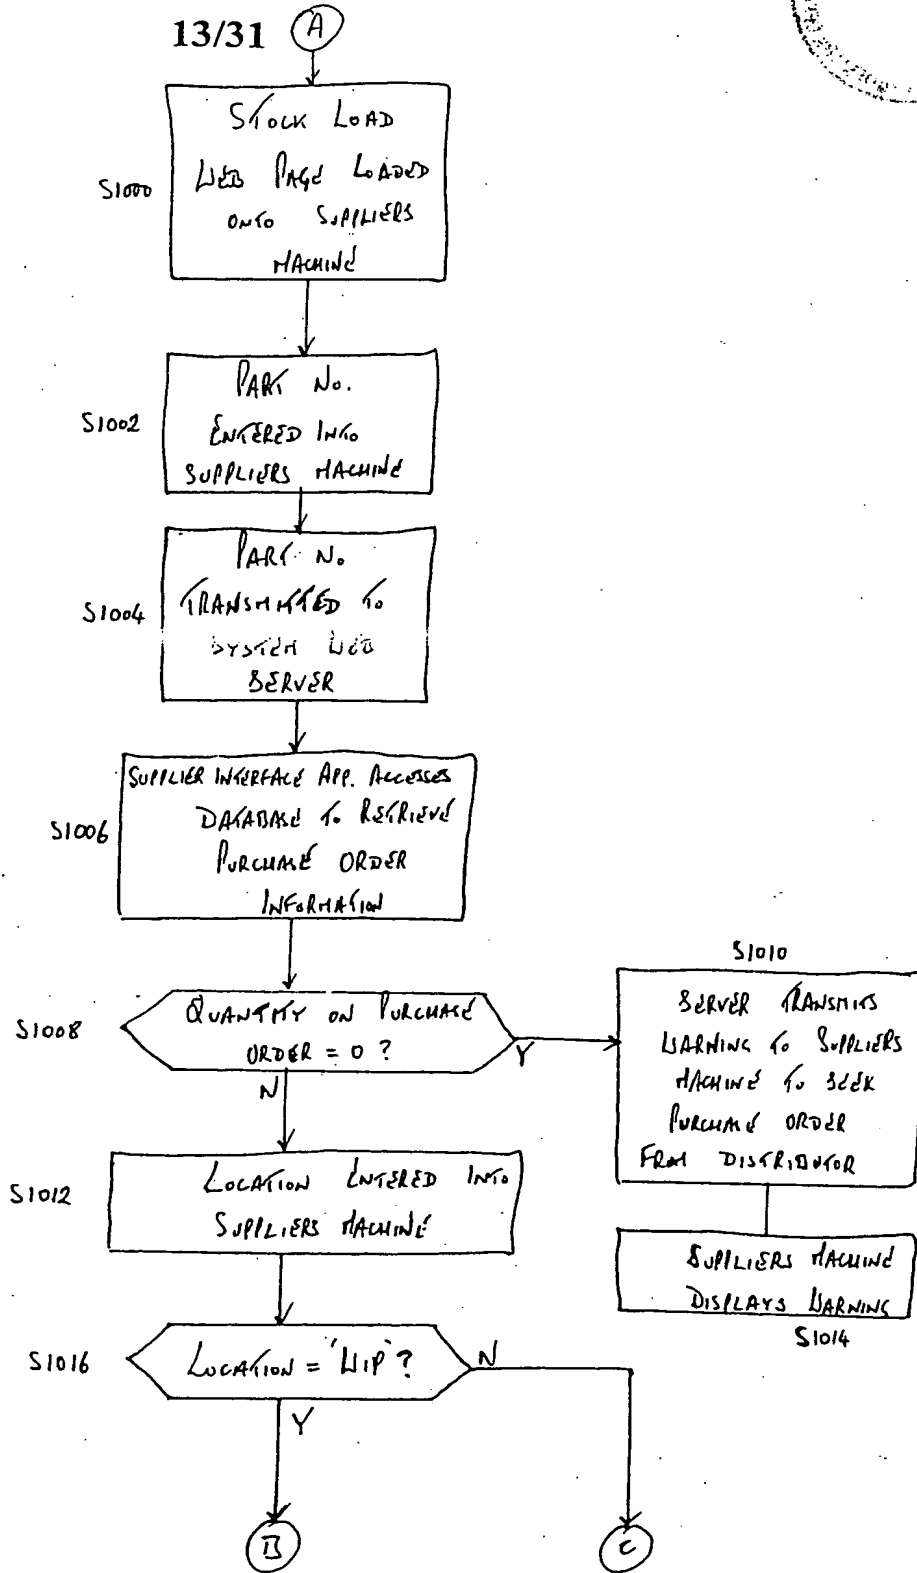 13/31
A
STOCK LOAD
WEB PAGE LOADED
ONTO SUPPLIERS
MACHINE
S1000
PART NO.
ENTERED INTO
SUPPLIERS MACHINE
S1002
PART NO
TRANSMITTED TO
SYSTEM WEB
SERVER
S1004
SUPPLIER INTERFACE APP. ACCESSES
DATABASE TO RETRIEVE
PURCHASE ORDER
INFORMATION
S1006
QUANTITY ON PURCHASE
ORDER = 0 ?
S1008
Y
N
S1010
SERVER TRANSMITS
WARNING TO SUPPLIERS
MACHINE TO SEEK
PURCHASE ORDER
FROM DISTRIBUTOR
LOCATION ENTERED INTO
SUPPLIERS MACHINE
S1012
SUPPLIERS MACHINE
DISPLAYS WARNING
S1014
LOCATION = 'WIP' ?
S1016
N
Y
B
C